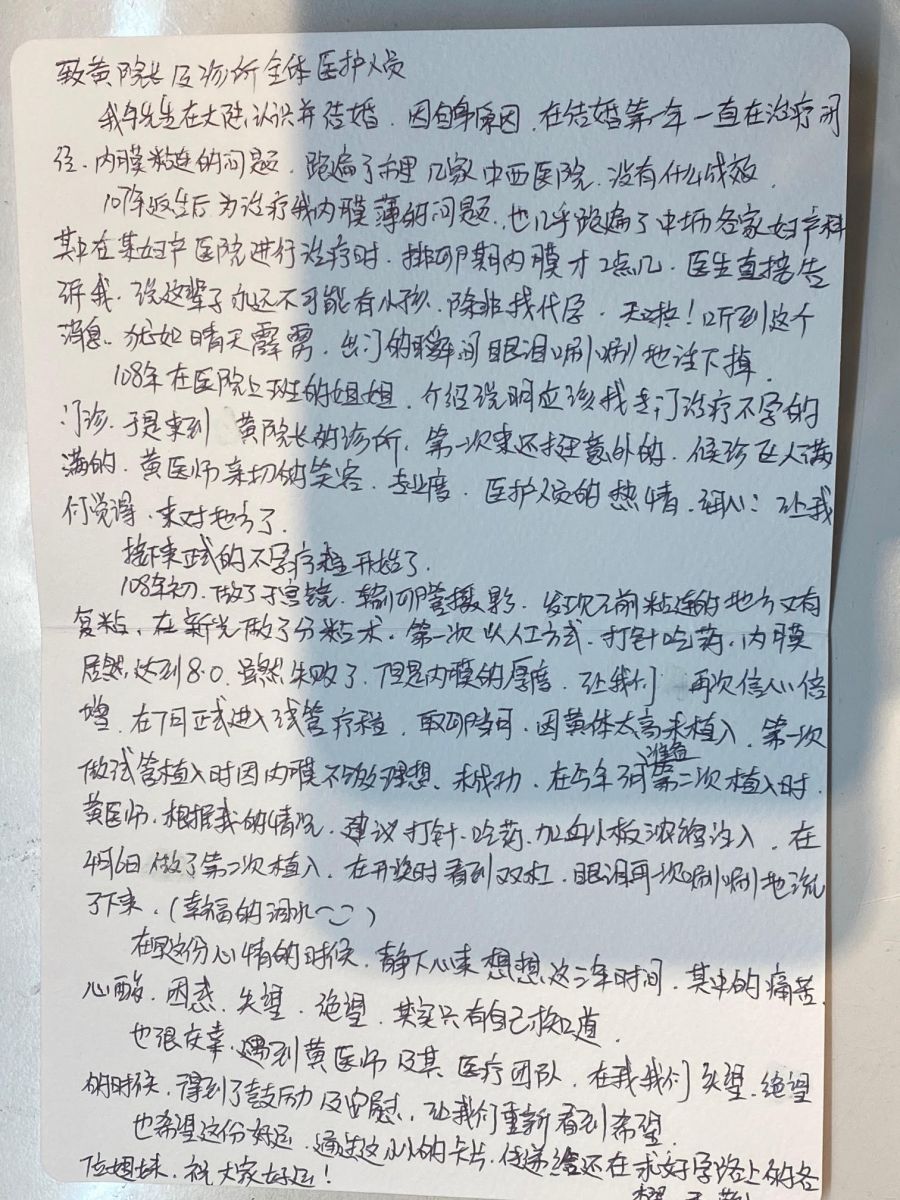 致黄院长及诊所全体医护人员
我与先生在大陆认识并结婚．因自身原因．在结婚第一年一直在治疗闭
经．内膜粘连的问题．跑遍了市里几家中西医院．没有什么成效．
107年返台后为治疗我内膜薄的问题．也几乎跑遍了中坜各家妇产科
其中在某妇产医院进行治疗时．排卵期内膜才2点几．医生直接告
诉我．说这辈子永远不可能有小孩．除非找代孕．天啦！听到这个
消息．犹如晴天霹雳．出门的瞬间眼泪唰唰地往下掉．
108年在医院上班的姐姐．介绍说明应该我去门治疗不孕的
门诊．于是来到 黄院长的诊所．第一次来还挺意外的．候诊区人满
满的．黄医师亲切的笑容．专业度．医护人员的热情．细心：让我
们觉得．来对地方了．
接下来正式的不孕疗程开始了．
108年初．做了子宫镜．输卵管摄影．发现之前粘连的地方又有
复粘．在新光做了分粘术．第一次以人工方式．打针吃药．内膜
居然达到8.0．虽然失败了．但是内膜的厚度．让我们 再次信心倍
增．在7月正式进入试管疗程．取卵当日．因黄体太高未植入．第一次
做试管植入时因内膜不够理想．未成功．在今年3月准备第二次植入时．
黄医师．根据我的情况．建议打针．吃药．加血小板浓缩注入．在
4月6日做了第二次植入．在开奖时看到双杠．眼泪再一次唰唰地流
了下来．（幸福的泪水～）
在写这份心情的时候．静下心来想想这三年时间．其中的痛苦．
心酸．困惑．失望．绝望．其实只有自己知道
也很庆幸．遇到黄医师及其医疗团队．在我我们失望．绝望
的时候．得到了鼓励及安慰．让我们重新看到希望．
也希望这份好运．通过这小小的卡片．传递给还在求好孕路上的各
位姐妹．祝大家好运！